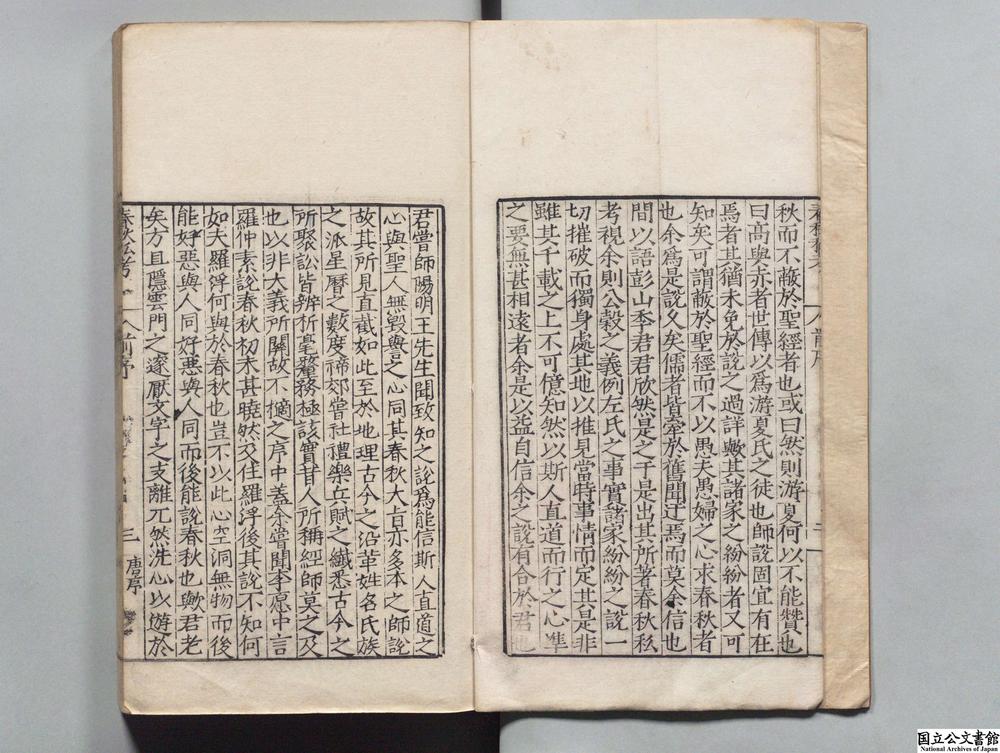 秋而不蔽於聖經者也或曰然則游夏何以不能贊也
曰高與赤者世傳以爲游夏氏之徒也師說固宜有在
焉者其猶未免於說之過詳歟其諸家之紛紛者又可
知矣可謂蔽於聖經而不以愚夫愚婦之心求春秋者
也余爲是說久矣儒者皆牽於舊聞迂焉而莫余信也
間以語彭山季君君欣然是之于是出其所著春秋私
考視余則公穀之義例左氏之事實諸家紛紛之說一
切摧破而獨身處其地以推見當時事情而定其是非
雖其千載之上不可億知然以斯人直道而行之心準
之要無甚相遠者余是以益自信余之說有合於君也
君嘗師陽明王先生聞致知之說爲能信斯人直道之
心與聖人無毀譽之心同其春秋大旨亦多本之師說
故其所見直截如此至於地理古今之沿革姓名氏族
之派星曆之數度禘郊嘗社禮樂兵賦之纖悉古今之
所聚訟皆辨析毫釐務極該實昔人所稱經師莫之及
也以非大義所關故不擿之序中蓋余嘗聞李愿中言
羅仲素說春秋初未甚曉然及住羅浮後其說不知何
如夫羅浮何與於春秋也豈不以此心空洞無物而後
能好惡與人同好惡與人同而後能說春秋也歟君老
矣方且隱雲門之邃厭文字之支離兀然洗心以遊於
春秋私考
前序
三
唐序
国立公文書館
National Archives of Japan